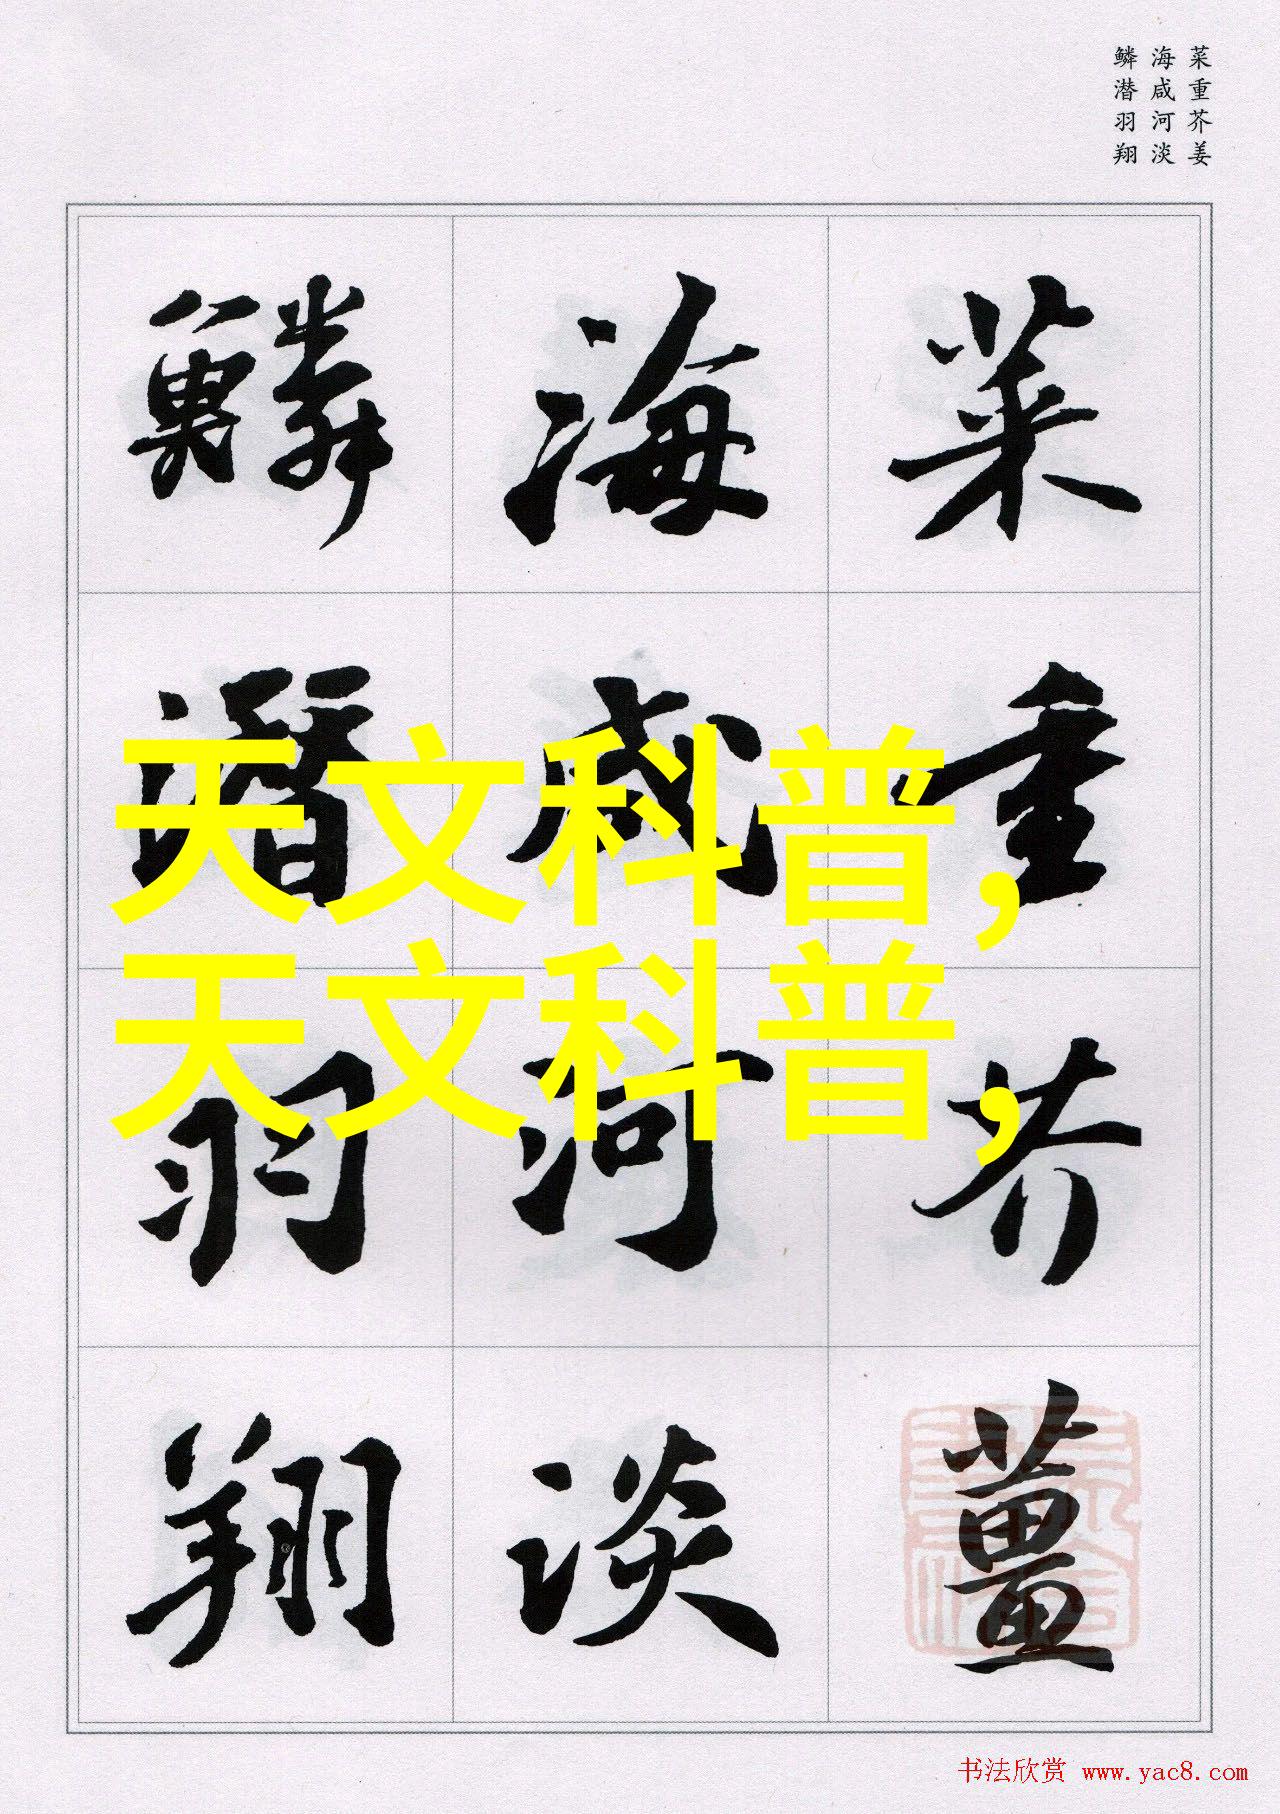 菜重芥姜
海咸河淡
鳞潜羽翔
菜重芥薑
海咸河淡
鱗潛羽翔
天文科普，
天文科普，
书法欣赏 www.yac8.com